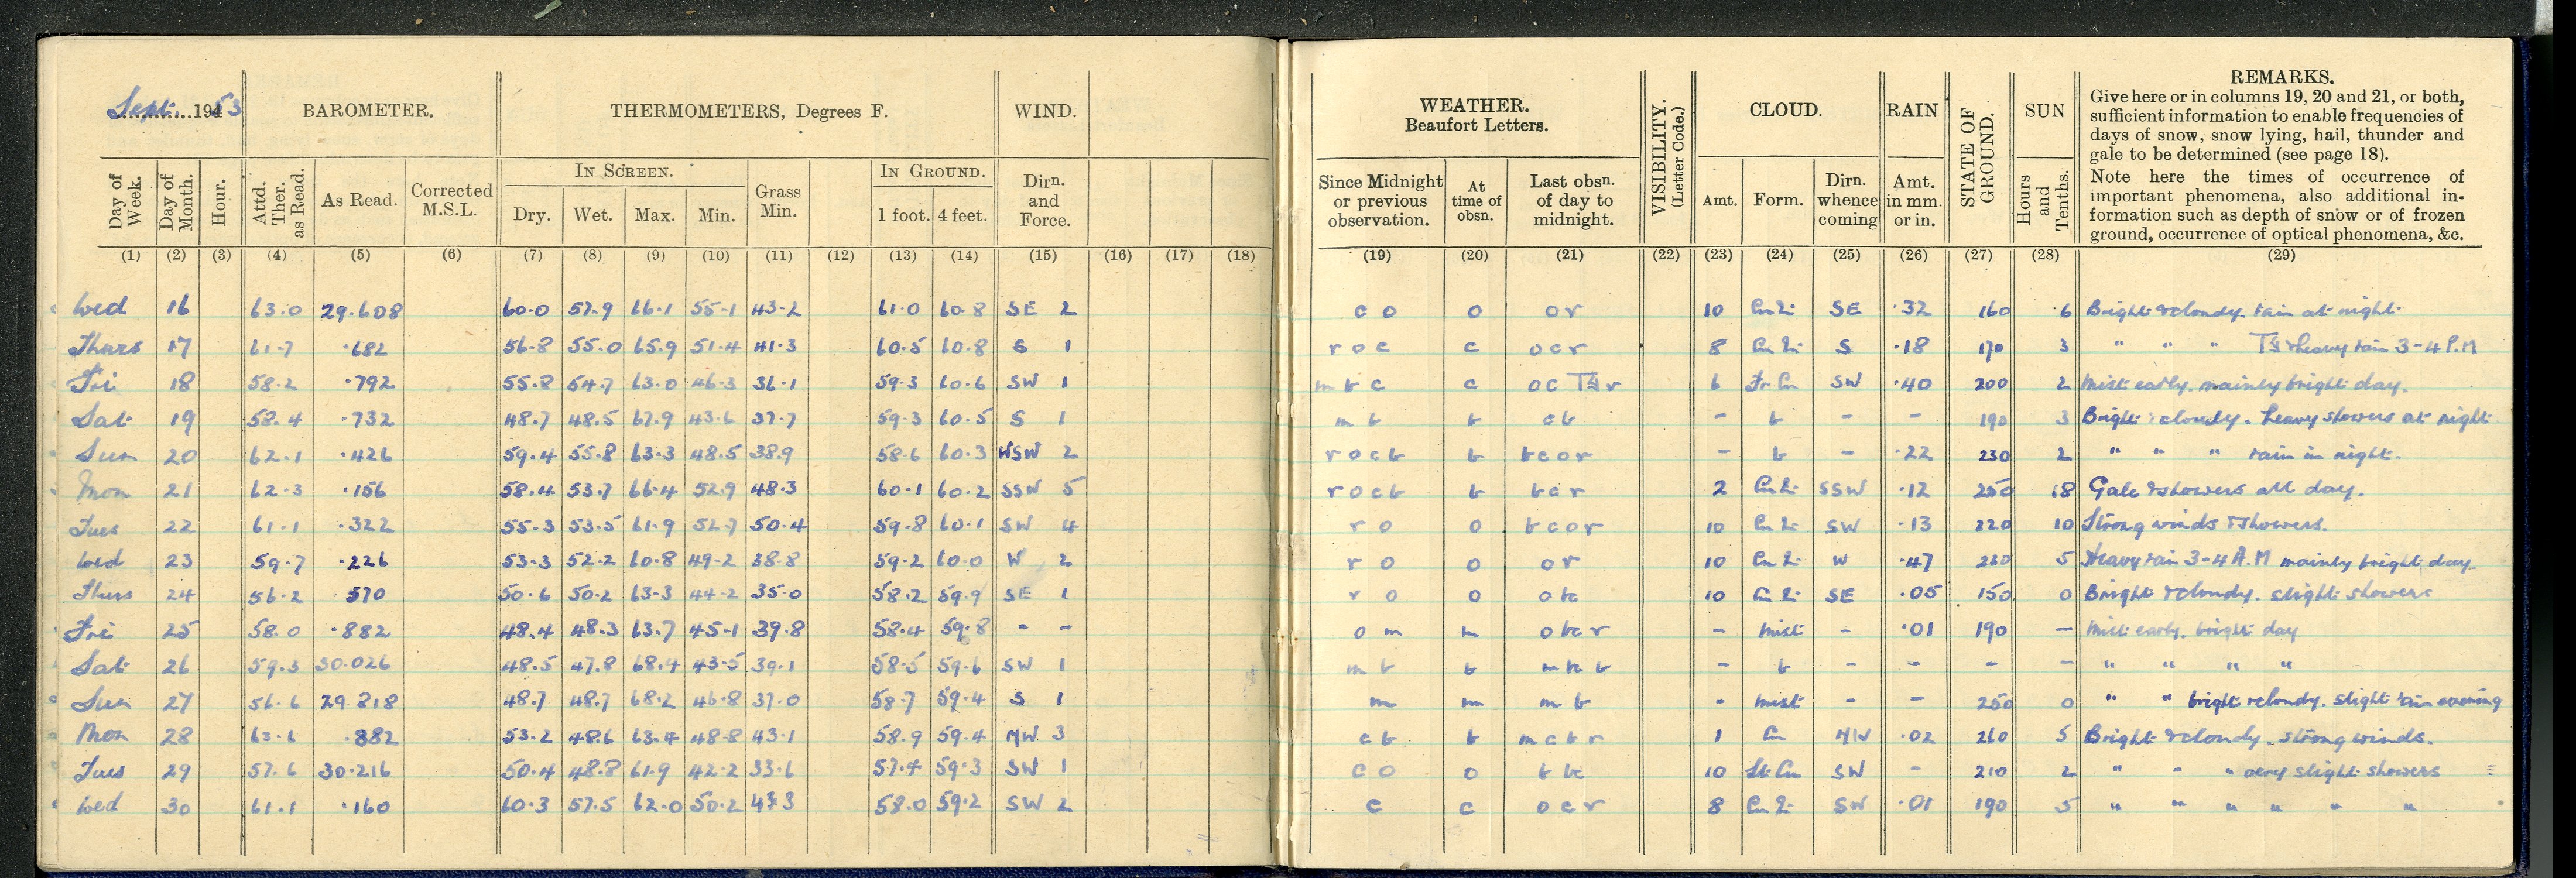 Sept. 1953 BAROMETER. THERMOMETERS, Degrees F. WIND. WEATHER. Beaufort Letters. VISIBILITY. (Letter Code.) CLOUD. RAIN STATE OF GROUND. SUN REMARKS.
Give here or in columns 19, 20 and 21, or both,
sufficient information to enable frequencies of
days of snow, snow lying, hail, thunder and
gale to be determined (see page 18).
Note here the times of occurrence of
important phenomena, also additional in-
formation such as depth of snow or of frozen
ground, occurrence of optical phenomena, &c.
IN SCREEN. IN GROUND.
Day of Week. Day of Month. Hour. Attd. Ther. as Read. As Read. Corrected M.S.L. Dry. Wet. Max. Min. Grass Min. 1 foot. 4 feet. Dirn. and Force. Since Midnight or previous observation. At time of obsn. Last obsn. of day to midnight. Amt. Form. Dirn. whence coming Amt. in mm. or in. Hours and Tenths.
(1) (2) (3) (4) (5) (6) (7) (8) (9) (10) (11) (12) (13) (14) (15) (16) (17) (18) (19) (20) (21) (22) (23) (24) (25) (26) (27) (28) (29)
Wed 16 63.0 29.608 60.0 57.9 66.1 55.1 43.2 61.0 60.8 SE 2 c o o o r 10 SE .32 160 .6 Bright & cloudy. rain at night.
Thurs 17 61.7 .682 56.8 55.0 65.9 51.4 41.3 60.5 60.8 S 1 r o c c o c r 8 S .18 170 3 " " " & heavy rain 3-4 P.M
Fri 18 58.2 .792 55.8 54.7 63.0 46.3 36.1 59.3 60.6 SW 1 m b c c o c r 6 Fr Cu SW .40 200 2 Mist early. mainly bright day.
Sat 19 58.4 .732 48.7 48.5 67.9 43.6 37.7 59.3 60.5 S 1 m b b c b - b - - 190 3 Bright & cloudy. heavy showers at night
Sun 20 62.1 .426 59.4 55.8 63.3 48.5 38.9 58.6 60.3 WSW 2 r o c b b b c o r - b - .22 230 2 " " " rain in night.
Mon 21 62.3 .156 58.4 53.7 66.4 52.9 48.3 60.1 60.2 SSW 5 r o c b b b c r 2 SSW .12 250 .8 Gale & showers all day.
Tues 22 61.1 .322 55.3 53.5 61.9 52.7 50.4 59.8 60.1 SW 4 r o o b c o r 10 SW .13 220 10 Strong winds & showers.
Wed 23 59.7 .226 53.3 52.2 60.8 49.2 38.8 59.2 60.0 W 2 r o o o r 10 W .47 230 5 Heavy rain 3-4 A.M mainly bright day.
Thurs 24 56.2 570 50.6 50.2 63.3 44.2 35.0 58.2 59.9 SE 1 r o o o bc 10 SE .05 150 0 Bright & cloudy. slight showers
Fri 25 58.0 .882 48.4 48.3 63.7 45.1 39.8 58.4 59.8 - - o m m o bc r - Mist - .01 190 - Mist early. bright day
Sat 26 59.3 30.026 48.5 47.8 68.4 43.5 39.1 58.5 59.6 SW 1 m b b m b - b - - - - " " " "
Sun 27 56.6 29.818 48.7 48.7 68.2 46.8 37.0 58.7 59.4 S 1 m m m b - Mist - - 250 0 " " bright & cloudy. slight rain evening
Mon 28 63.6 .882 53.2 48.6 63.4 48.8 43.1 58.9 59.4 NW 3 c b b m c b r 1 Cu NW .02 260 5 Bright & cloudy. strong winds.
Tues 29 57.6 30.216 50.4 48.8 61.9 42.2 33.6 57.4 59.3 SW 1 c o o b bc 10 St Cu SW - 210 2 " " " very slight showers
Wed 30 61.1 .160 60.3 57.5 62.0 50.2 58.0 59.2 SW 2 c c o c r 8 SW .01 190 5 " " " " " "